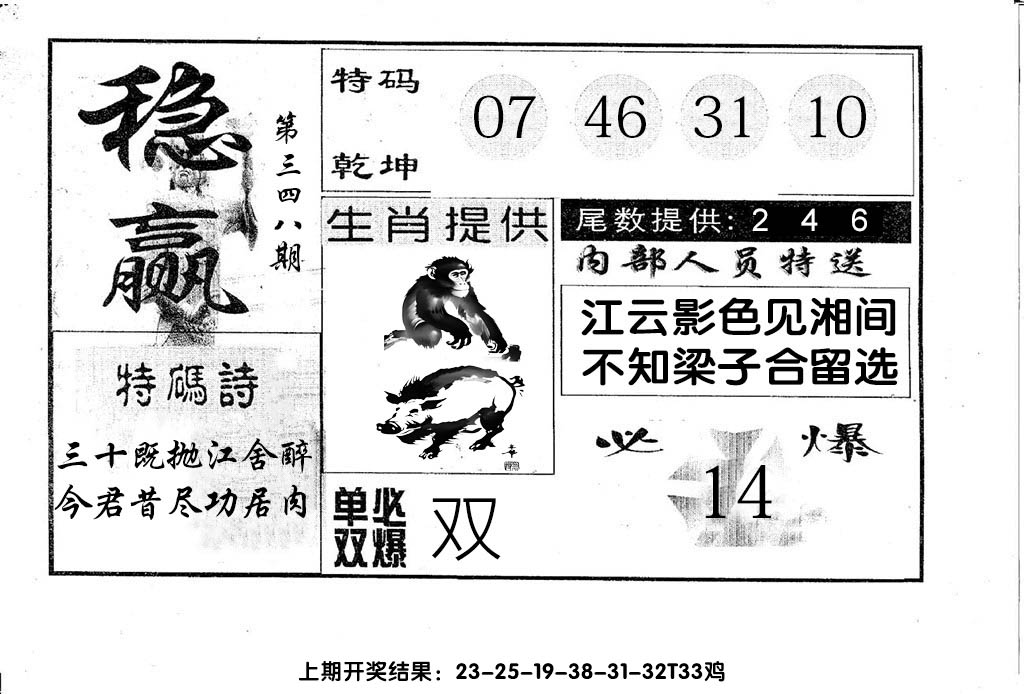 稳赢
第三四八期
特码诗
三十既抛江舍醉
今君昔尽功居肉
特码
乾坤
07 46 31 10
生肖提供
尾数提供: 2 4 6
内部人员特送
江云影色见湘间
不知梁子合留选
必爆
14
单双必爆
双
上期开奖结果：23-25-19-38-31-32T33鸡